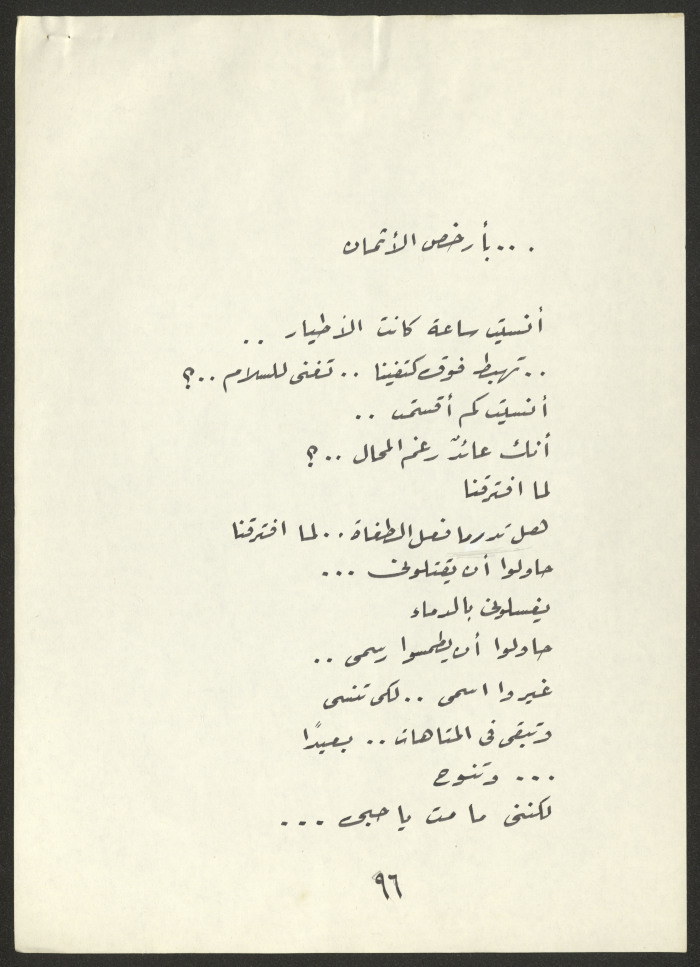 ...بأرخص الأثمان
أنسيت ساعة كانت الأطيار ..
..تهبط فوق كتفينا .. تغنى للسلام ..؟
أنسيت كم أقسمت ..
أنك عائدٌ رغم المحال ..؟
لما افترقنا
هل تدرى ما فعل الطغاة..لما افترقنا
حاولوا أن يقتلونى ...
يغسلونى بالدماء
حاولوا أن يطمسوا رسمى ..
غيروا اسمى ..لكى تنسى
وتبقى فى المتاهات .. بعيدًا
... وتنوح
لكننى ما مت يا حبى ...
٩٦